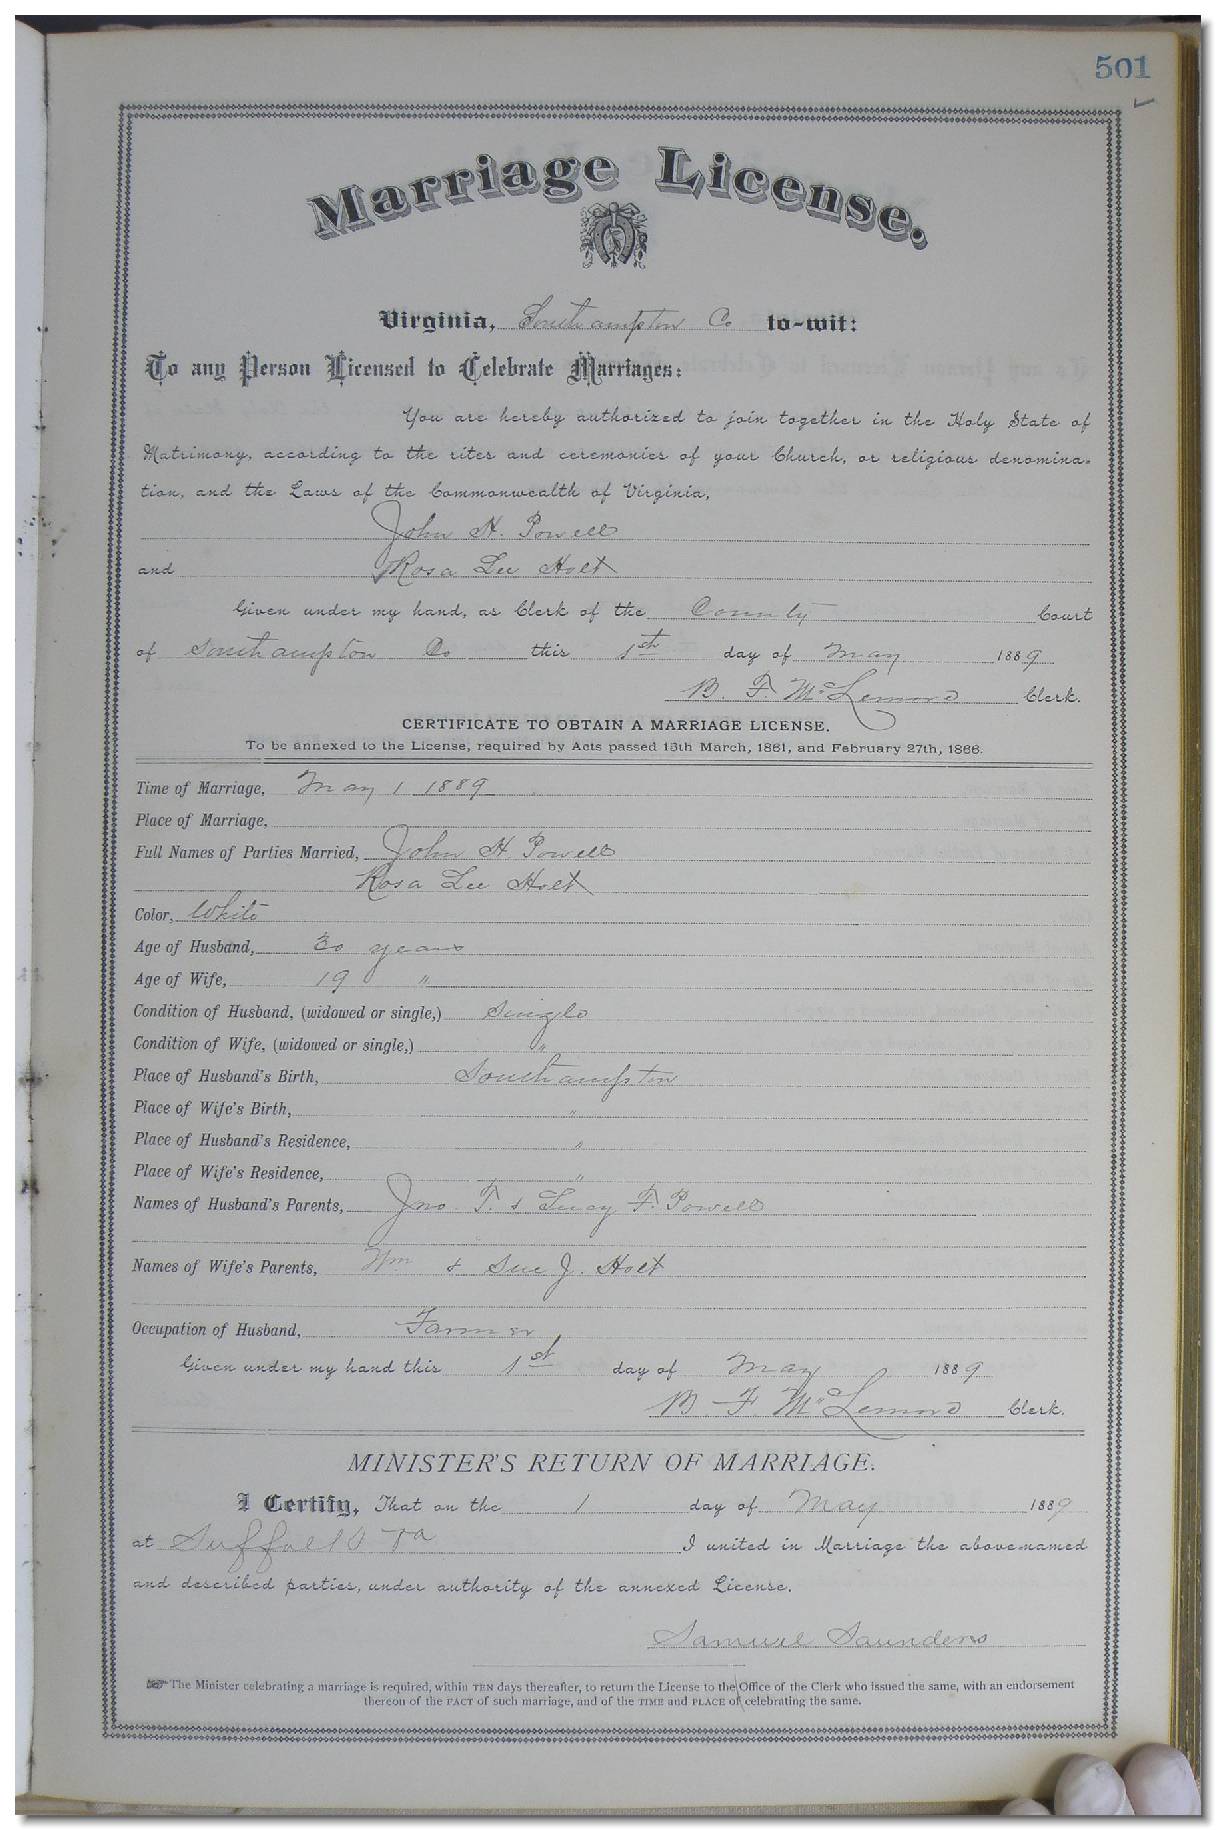 501
Marriage License.
Virginia, Southampton Co to-wit:
To any Person Licensed to Celebrate Marriages:
You are hereby authorized to join together in the Holy State of
Matrimony, according to the rites and ceremonies of your Church, or religious denomina-
tion, and the Laws of the Commonwealth of Virginia,
John H. Powell
and Rosa Lee Holt
Given under my hand, as Clerk of the County Court
of Southampton Co this 1st day of May 1889
B. F. McLemore Clerk.
CERTIFICATE TO OBTAIN A MARRIAGE LICENSE.
To be annexed to the License, required by Acts passed 15th March, 1861, and February 27th, 1866.
Time of Marriage, May 1 1889
Place of Marriage,
Full Names of Parties Married, John H Powell
Rosa Lee Holt
Color, White
Age of Husband, 30 years
Age of Wife, 19 "
Condition of Husband, (widowed or single,) Single
Condition of Wife, (widowed or single,) "
Place of Husband's Birth, Southampton
Place of Wife's Birth, "
Place of Husband's Residence, "
Place of Wife's Residence, "
Names of Husband's Parents, Jno. T. & Lucy F. Powell
Names of Wife's Parents, Wm & Sue J. Holt
Occupation of Husband, Farmer
Given under my hand this 1st day of May 1889
B. F. McLemore Clerk.
MINISTER'S RETURN OF MARRIAGE.
I Certify, That on the 1 day of May 1889
at Suffolk Va I united in Marriage the above-named
and described parties, under authority of the annexed License.
Samuel Saunders
The Minister celebrating a marriage is required, within TEN days thereafter, to return the License to the Office of the Clerk who issued the same, with an endorsement
thereon of the FACT of such marriage, and of the TIME and PLACE of celebrating the same.